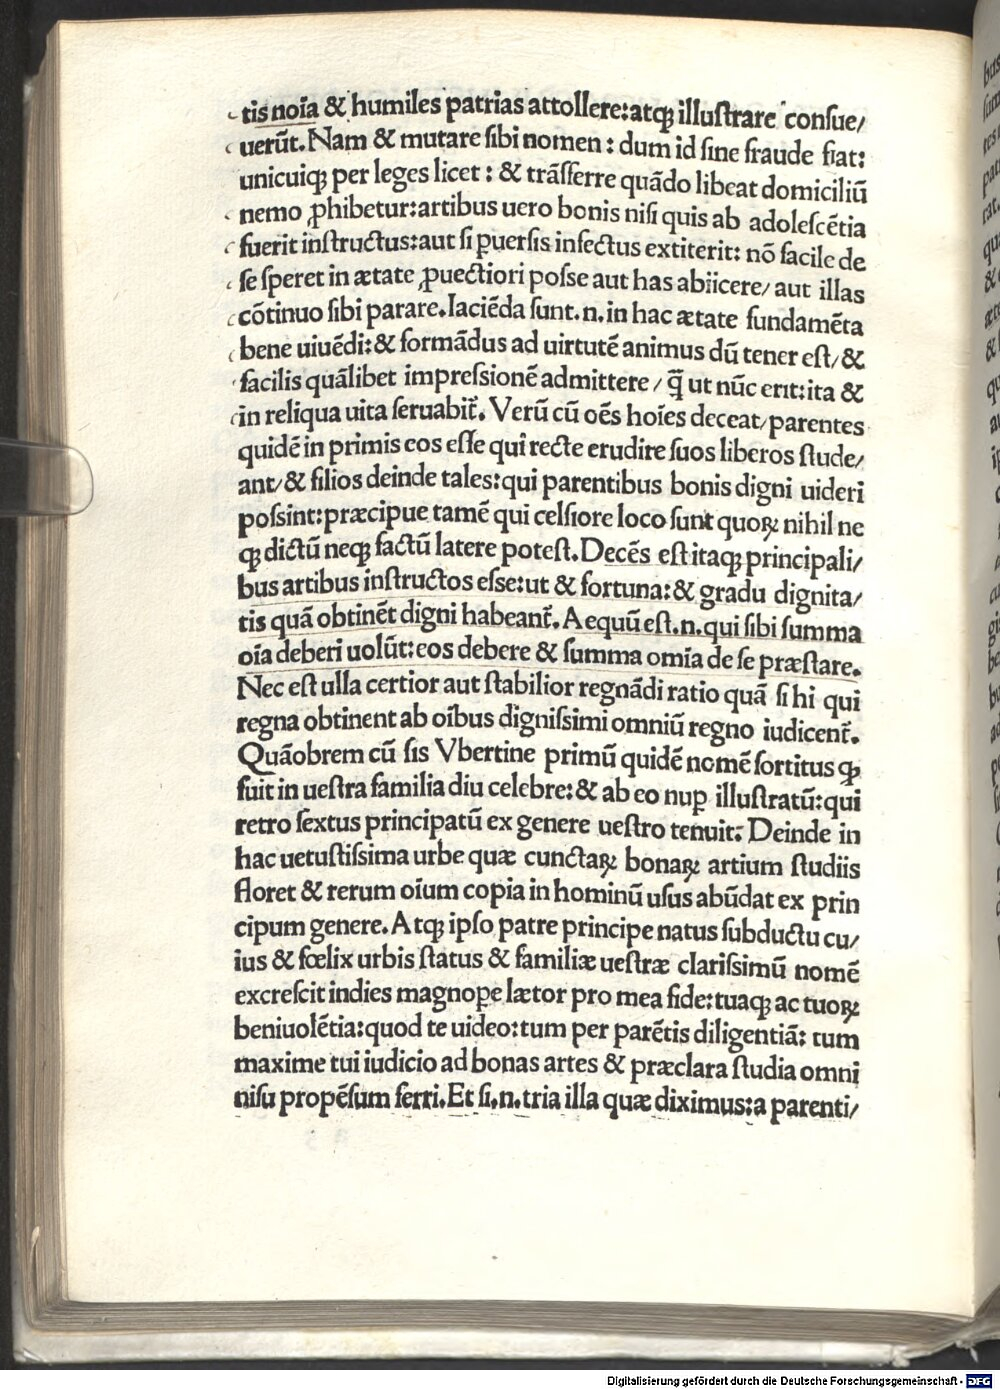 tis noĩa & humiles patrias attollere:atqꝫ illuſtrare conſue/
uerũt.Nam & mutare ſibi nomen : dum id ſine fraude fiat:
unicuiqꝫ per leges licet : & trãſferre quãdo libeat domiciliũ
nemo ꝓhibetur:artibus uero bonis niſi quis ab adoleſcẽtia
fuerit inſtructus:aut ſi ꝑuerſis infectus extiterit: nõ facile de
ſe ſperet in ætate ꝓuectiori poſſe aut has abiicere/ aut illas
cõtinuo ſibi parare.Iaciẽda ſunt.n.in hac ætate fundamẽta
bene uiuẽdi:& formãdus ad uirtutẽ animus dũ tener eſt/ &
facilis quãlibet impreſsionẽ admittere / q̃ ut nũc erit:ita &
in reliqua uita ſeruabit̃. Verũ cũ oẽs hoĩes deceat/parentes
quidẽ in primis eos eſſe qui recte erudire ſuos liberos ſtude/
ant/& filios deinde tales:qui parentibus bonis digni uideri
poſsint:præcipue tamẽ qui celſiore loco ſunt quoꝝ nihil ne
qꝫ dictũ neqꝫ factũ latere poteſt.Decẽs eſt itaqꝫ principali/
bus artibus inſtructos eſse:ut & fortuna:& gradu dignita/
tis quã obtinẽt digni habeant̃.Aequũ eſt.n.qui ſibi ſumma
oĩa deberi uolũt:eos debere & ſumma omĩa de ſe præſtare.
Nec eſt ulla certior aut ſtabilior regnãdi ratio quã ſi hi qui
regna obtinent ab oĩbus digniſsimi omniũ regno iudicent̃.
Quãobrem cũ ſis Vbertine primũ quidẽ nomẽ ſortitus qꝫ
fuit in ueſtra familia diu celebre:& ab eo nuꝑ illuſtratũ:qui
retro ſextus principatũ ex genere ueſtro tenuit: Deinde in
hac uetuſtiſsima urbe quæ cunctaꝝ bonaꝝ artium ſtudiis
floret & rerum oĩum copia in hominũ uſus abũdat ex prin
cipum genere.Atqꝫ ipſo patre principe natus ſubductu cu/
ius & fœlix urbis ſtatus & familiæ ueſtræ clariſsimũ nomẽ
excreſcit indies magnoꝑe lætor pro mea fide:tuaqꝫ ac tuoꝝ
beniuolẽtia:quod te uideo:tum per parẽtis diligentiã: tum
maxime tui iudicio ad bonas artes & præclara ſtudia omni
niſu propẽſum ferri.Et ſi.n.tria illa quæ diximus:a parenti/
Digitalisierung gefördert durch die Deutsche Forschungsgemeinschaft - DFG